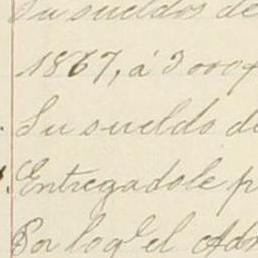 Su sueldos de
1867, á 3 000
Su sueldo d
Entregadole p
Por loq.e el Adm